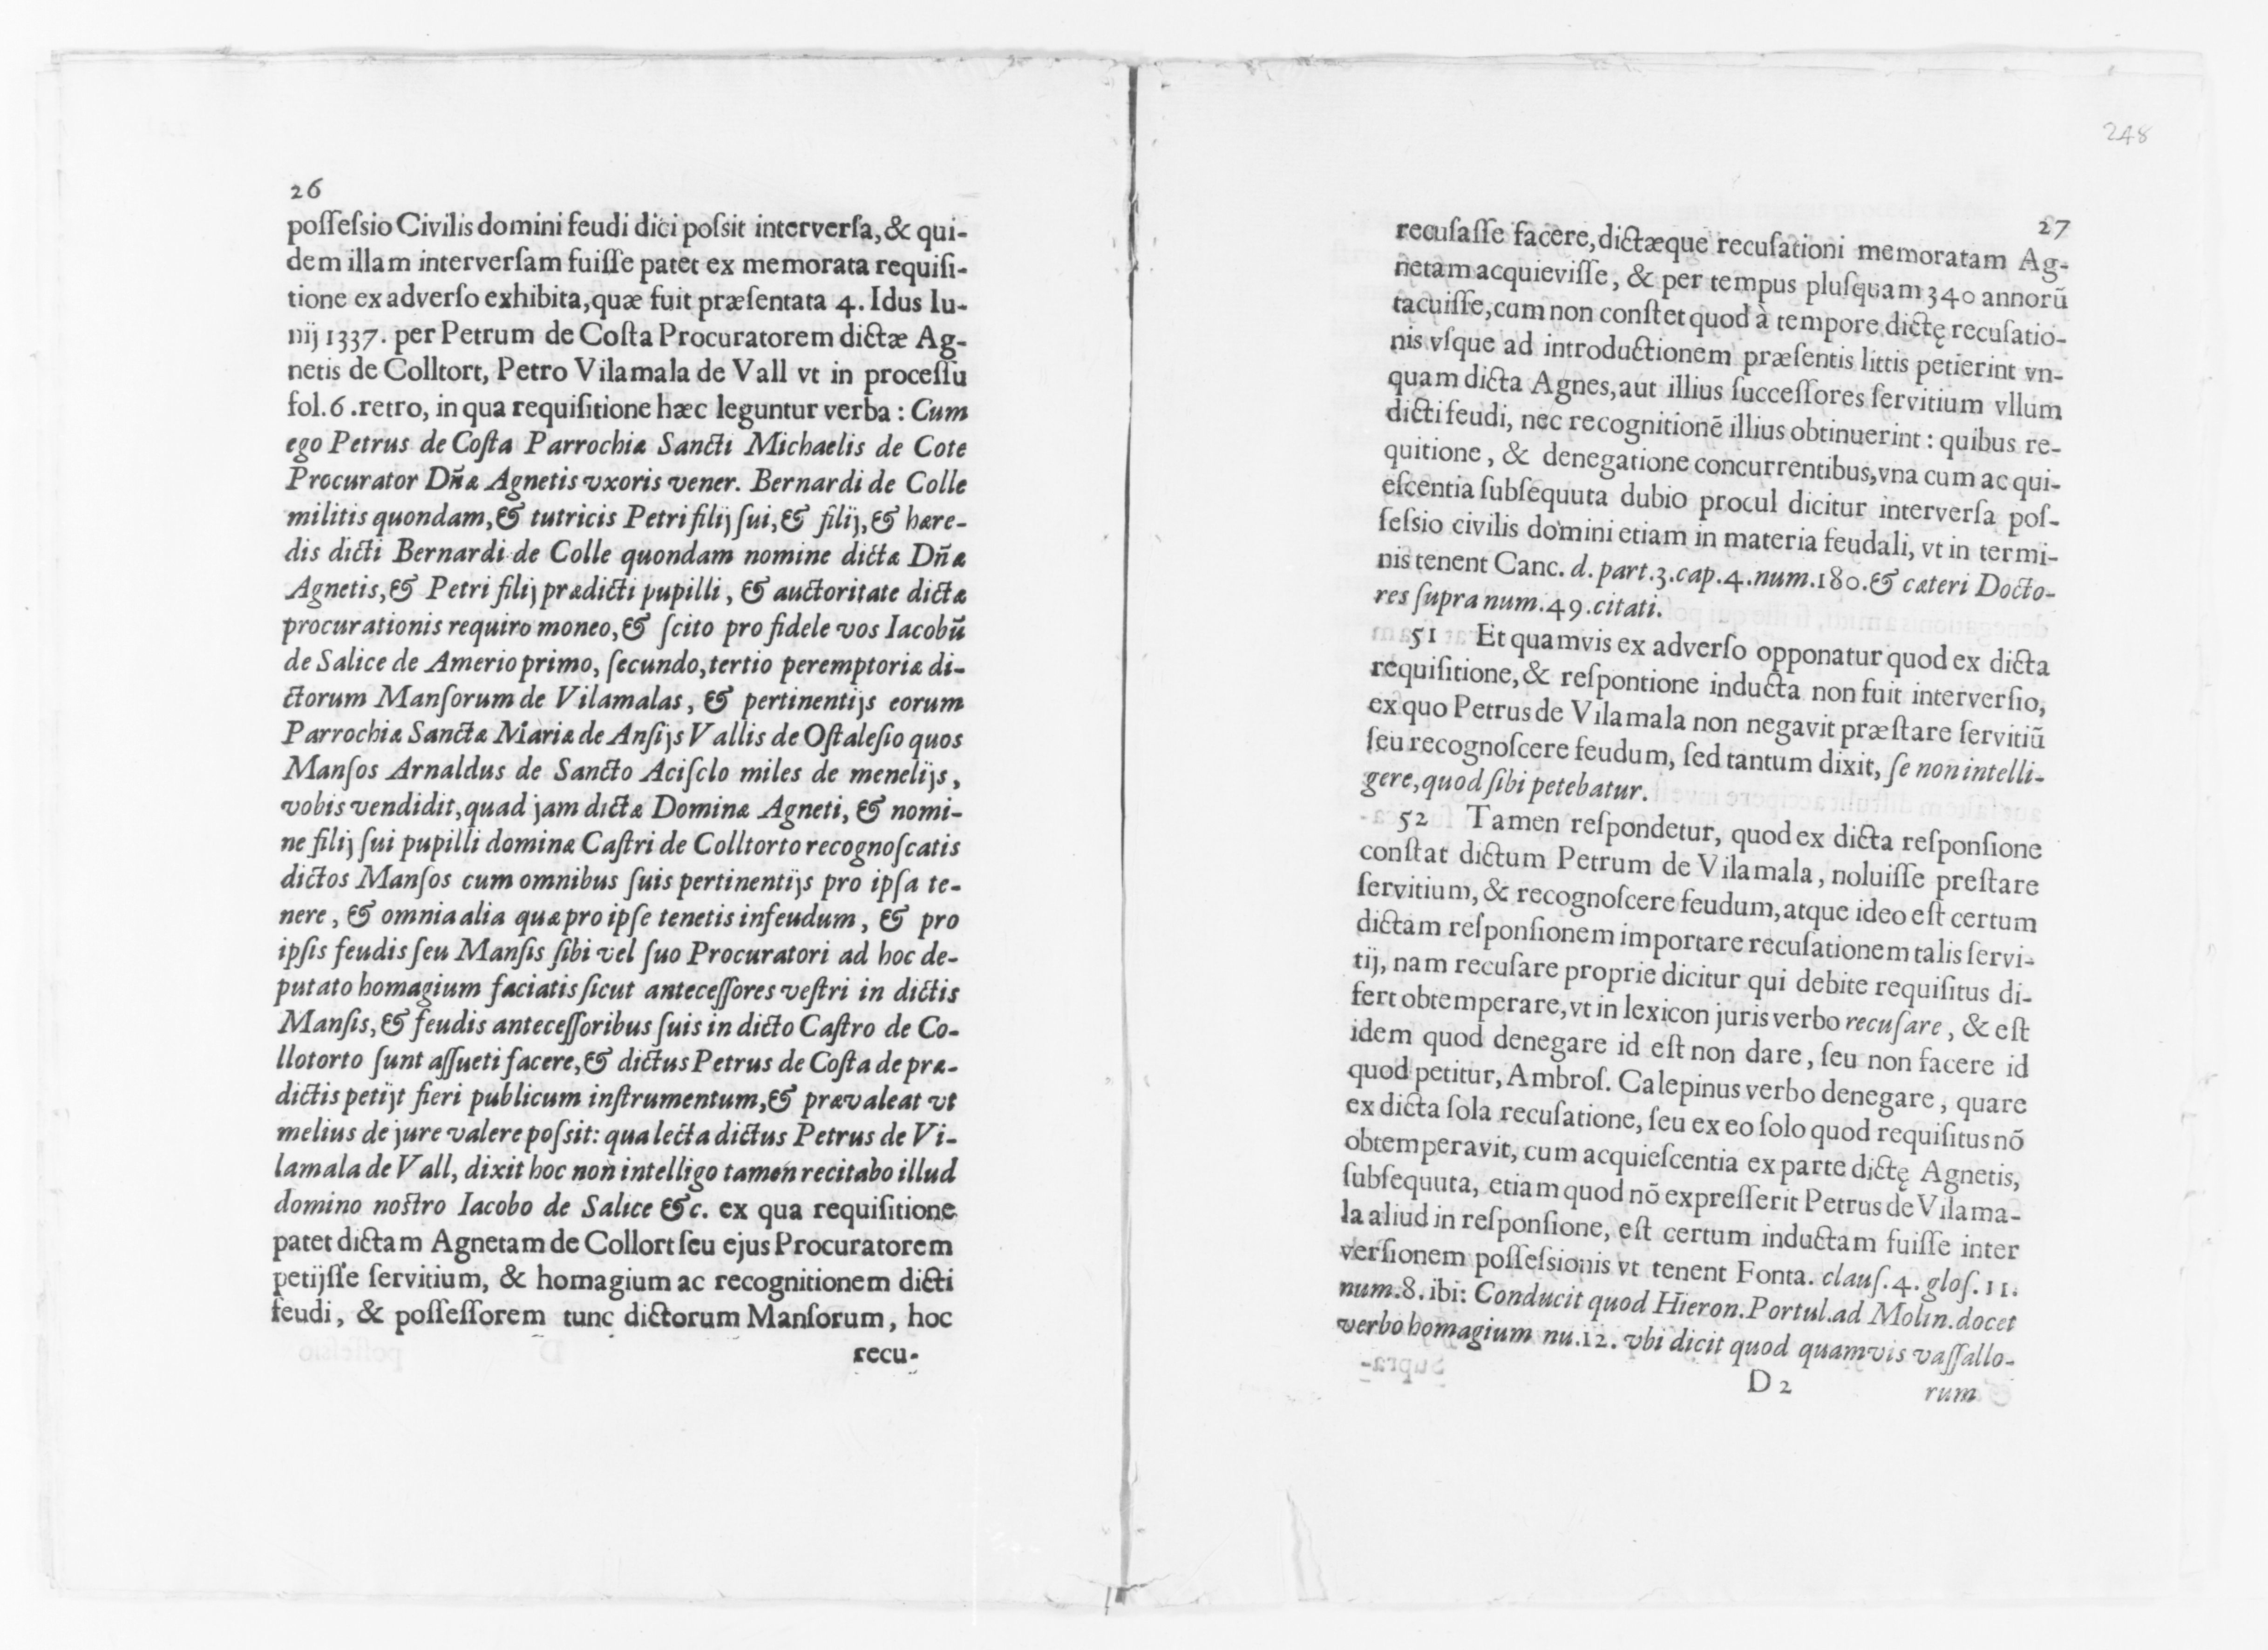 26
possessio Civilis domini feudi dici possit interversa, & qui-
dem illam interversam fuisse patet ex memorata requisi-
tione ex adverso exhibita, quæ fuit præsentata 4. Idus Iu-
nij 1337. per Petrum de Costa Procuratorem dictæ Ag-
netis de Colltort, Petro Vilamala de Vall vt in processu
fol. 6 .retro, in qua requisitione hæc leguntur verba : Cum
ego Petrus de Costa Parrochiæ Sancti Michaelis de Cote
Procurator Dñæ Agnetis vxoris vener. Bernardi de Colle
militis quondam, & tutricis Petri filij sui, & filij, & hære-
dis dicti Bernardi de Colle quondam nomine dictæ Dñæ
Agnetis, & Petri filij prædicti pupilli, & auctoritate dictæ
procurationis requiro moneo, & scito pro fidele vos Iacobũ
de Salice de Amerio primo, secundo, tertio peremptoriæ di-
ctorum Mansorum de Vilamalas, & pertinentijs eorum
Parrochiæ Sanctæ Mariæ de Ansijs Vallis de Ostalesio quos
Mansos Arnaldus de Sancto Acisclo miles de menelijs,
vobis vendidit, quad jam dictæ Dominæ Agneti, & nomi-
ne filij sui pupilli dominæ Castri de Colltorto recognoscatis
dictos Mansos cum omnibus suis pertinentijs pro ipsa te-
nere, & omnia alia quæ pro ipse tenetis infeudum, & pro
ipsis feudis seu Mansis sibi vel suo Procuratori ad hoc de-
putato homagium faciatis sicut antecessores vestri in dictis
Mansis, & feudis antecessoribus suis in dicto Castro de Co-
llotorto sunt assueti facere, & dictus Petrus de Costa de præ-
dictis petijt fieri publicum instrumentum, & prævaleat vt
melius de jure valere possit: qua lecta dictus Petrus de Vi-
lamala de Vall, dixit hoc non intelligo tamen recitabo illud
domino nostro Iacobo de Salice &c. ex qua requisitione
patet dictam Agnetam de Collort seu ejus Procuratorem
petijsse servitium, & homagium ac recognitionem dicti
feudi, & possessorem tunc dictorum Mansorum, hoc
recu-
248
27
recusasse facere, dictæque recusationi memoratam Ag-
netam acquievisse, & per tempus plusquam 340 annorũ
tacuisse, cum non constet quod à tempore dictę recusatio-
nis vsque ad introductionem præsentis littis petierint vn-
quam dicta Agnes, aut illius successores servitium vllum
dicti feudi, nec recognitionẽ illius obtinuerint : quibus re-
quitione, & denegatione concurrentibus, vna cum acqui-
escentia subsequuta dubio procul dicitur interversa pos-
sessio civilis domini etiam in materia feudali, vt in termi-
nis tenent Canc. d. part. 3. cap. 4. num. 180. & cæteri Docto-
res supra num. 49. citati.
51 Et quamvis ex adverso opponatur quod ex dicta
requisitione, & respontione inducta non fuit interversio,
ex quo Petrus de Vilamala non negavit præstare servitiũ
seu recognoscere feudum, sed tantum dixit, se non intelli-
gere, quod sibi petebatur.
52 Tamen respondetur, quod ex dicta responsione
constat dictum Petrum de Vilamala, noluisse prestare
servitium, & recognoscere feudum, atque ideo est certum
dictam responsionem importare recusationem talis servi-
tij, nam recusare proprie dicitur qui debite requisitus di-
fert obtemperare, vt in lexicon juris verbo recusare, & est
idem quod denegare id est non dare, seu non facere id
quod petitur, Ambros. Calepinus verbo denegare, quare
ex dicta sola recusatione, seu ex eo solo quod requisitus nõ
obtemperavit, cum acquiescentia ex parte dictę Agnetis,
subsequuta, etiam quod nõ expresserit Petrus de Vilama-
la aliud in responsione, est certum inductam fuisse inter
versionem possessionis vt tenent Fonta. claus. 4. glos. 11.
num. 8. ibi: Conducit quod Hieron. Portul. ad Molin. docet
verbo homagium nu. 12. vbi dicit quod quamvis vassallo-
D 2
rum